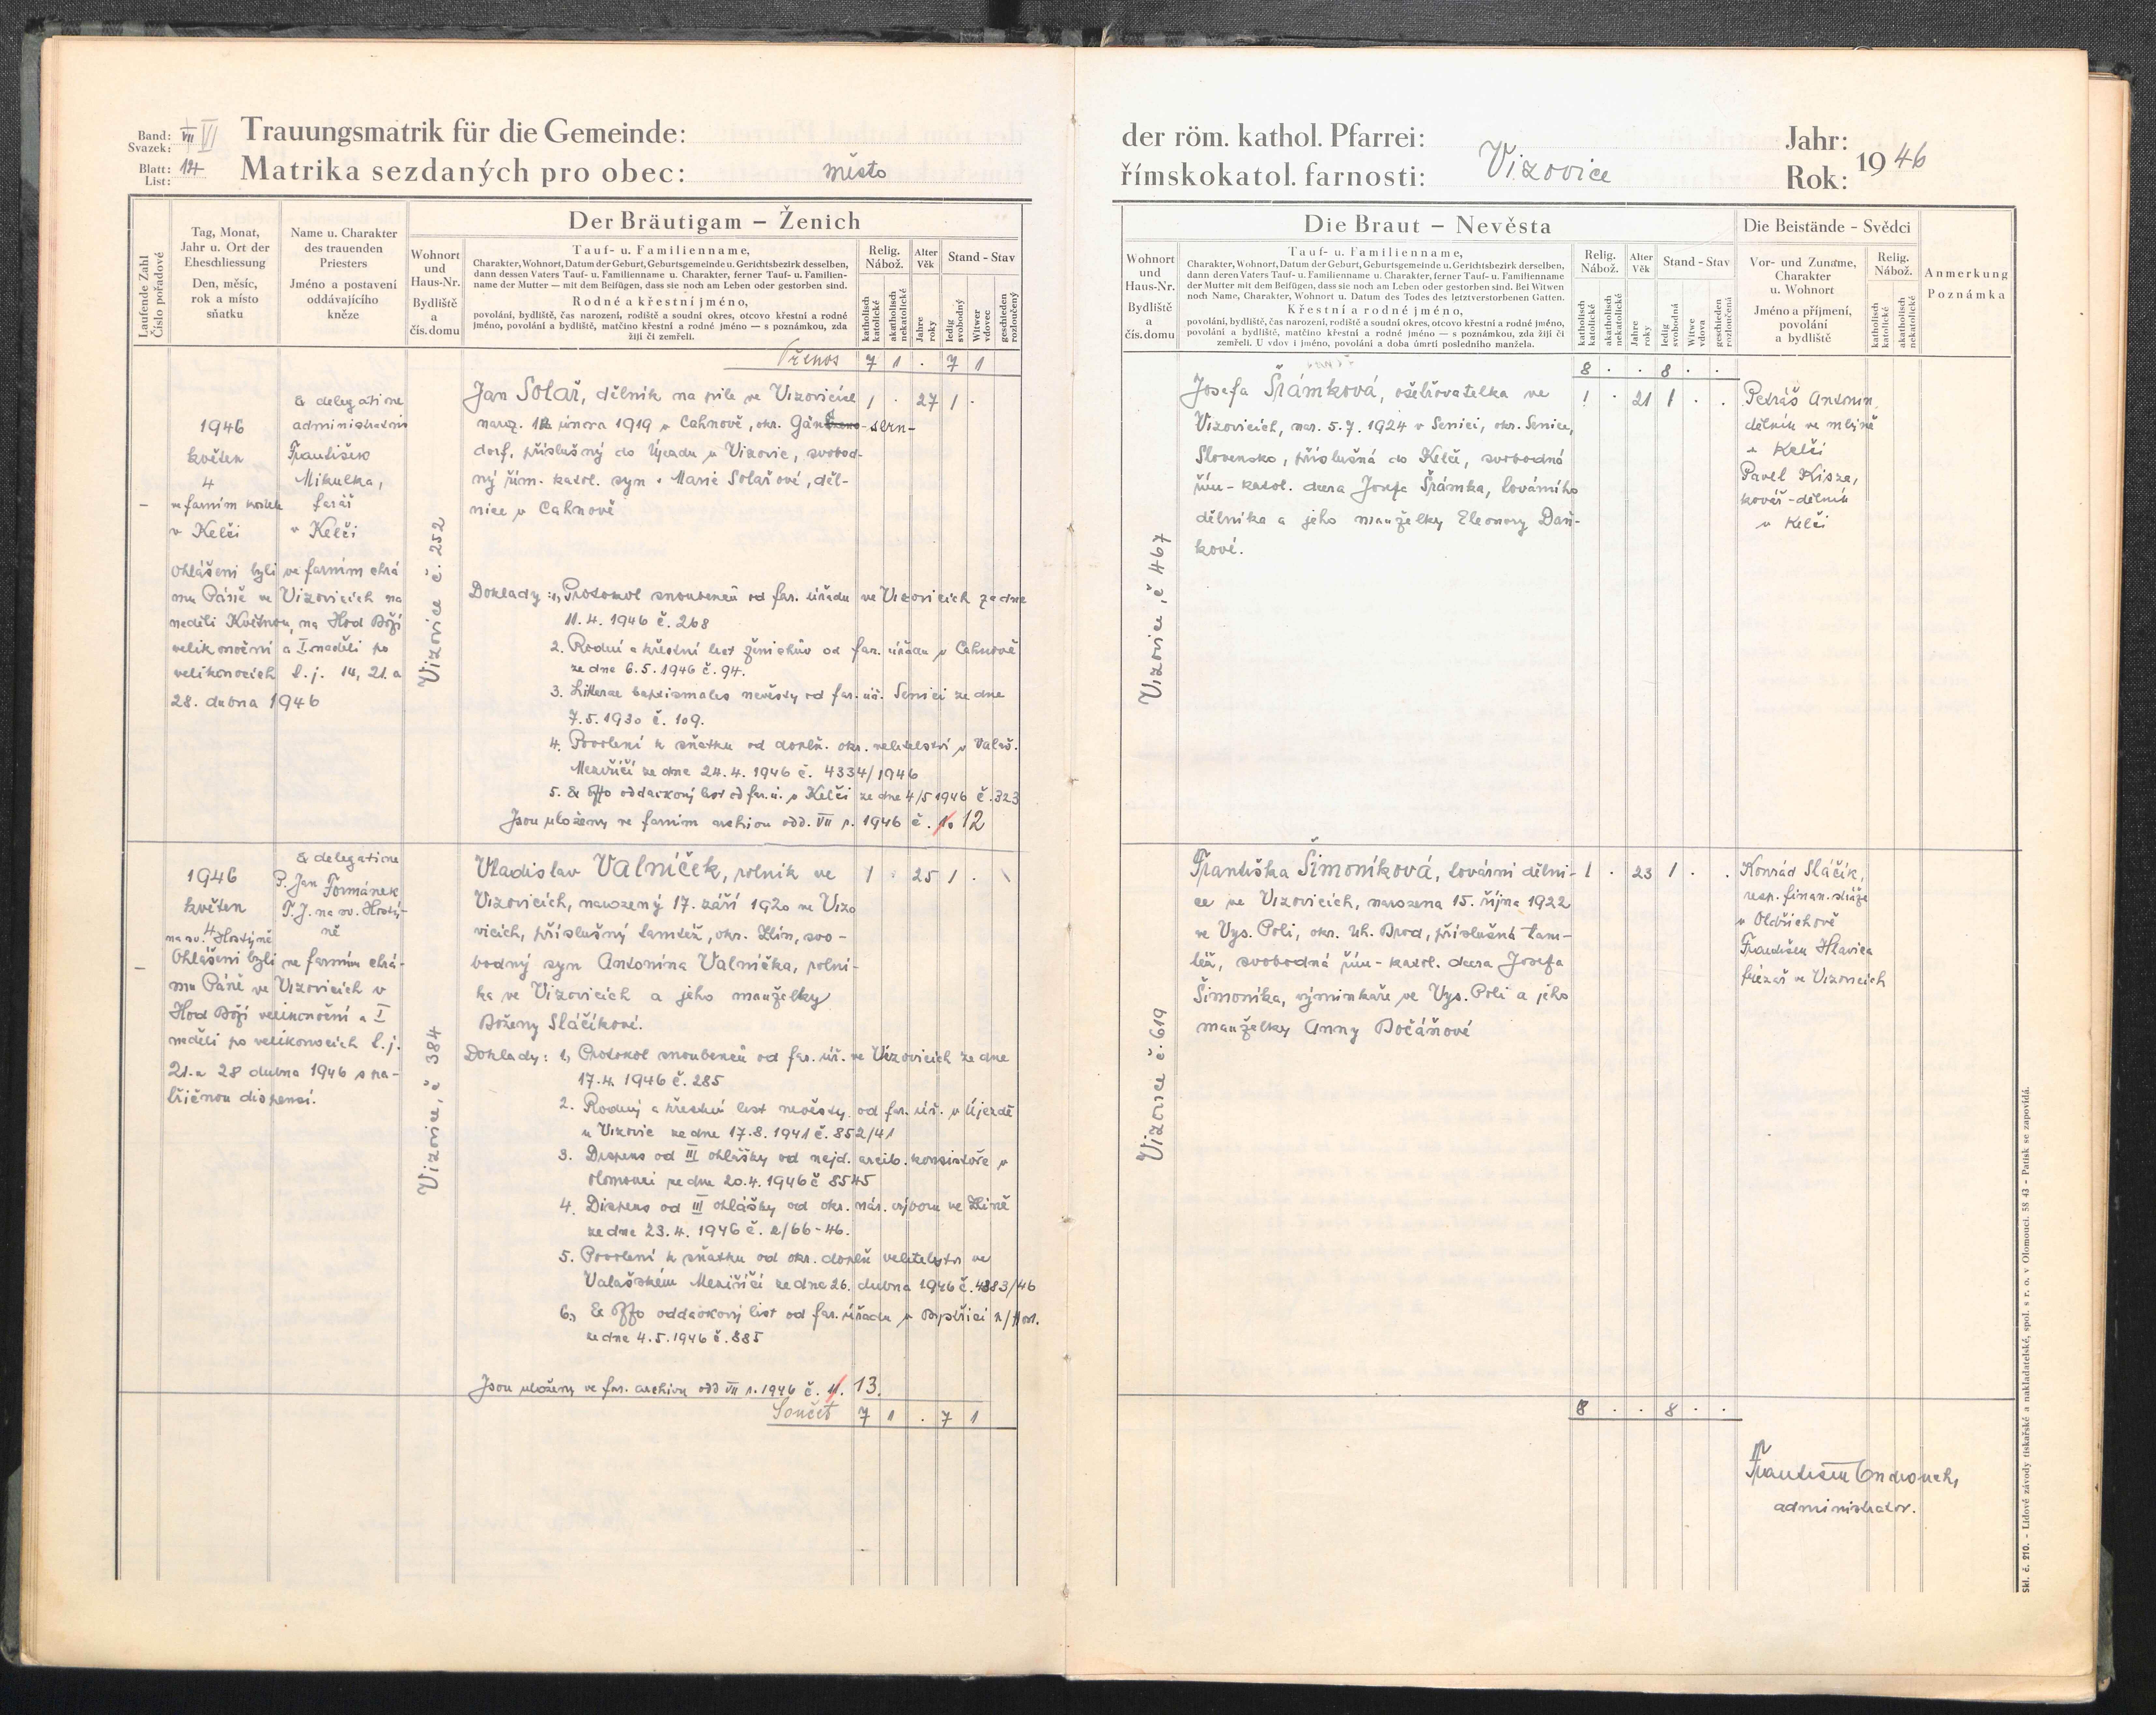 Band: VII VI
Svazek:
Blatt: 124
List:
Trauungsmatrik für die Gemeinde:
Matrika sezdaných pro obec: město
Laufende Zahl
Číslo pořadové
Tag, Monat,
Jahr u. Ort der
Eheschliessung
Den, měsíc,
rok a místo
sňatku
Name u. Charakter
des trauenden
Priesters
Jméno a postavení
oddávajícího
kněze
Der Bräutigam – Ženich
Wohnort
und
Haus-Nr.
Bydliště
a
čís. domu
Tauf- u. Familienname,
Charakter, Wohnort, Datum der Geburt, Geburtsgemeinde u. Gerichtsbezirk desselben,
dann dessen Vaters Tauf- u. Familienname u. Charakter, ferner Tauf- u. Familien-
name der Mutter — mit dem Beifügen, dass sie noch am Leben oder gestorben sind.
Rodné a křestní jméno,
povolání, bydliště, čas narození, rodiště a soudní okres, otcovo křestní a rodné
jméno, povolání a bydliště, matčino křestní a rodné jméno — s poznámkou, zda
žijí či zemřeli.
Relig.
Nábož.
katholisch
katolické
akatholisch
nekatolické
Alter
Věk
Jahre
roky
Stand - Stav
ledig
svobodný
Witwer
vdovec
geschieden
rozloučený
Přenos 7 1 . 7 1
1946
květen
4
ve farním kostele
v Kelči
Ex delegatione
administratoris
František
Mikulka,
farář
v Kelči
Ohlášeni byli ve farním chrá
mu Páně ve Vizovicích na
neděli Květnou, na Hod Boží
velikonoční a I. neděli po
velikonocích t. j. 14, 21. a
28. dubna 1946
Vizovice č. 252
Jan Solař, dělník na pile ve Vizovicích 1 . 27 1 .
naroz. 12. února 1919 v Cahnově, okr. Gän-sern-
dorf, příslušný do Újezdu u Vizovic, svobod-
ný řím. katol. syn Marie Solařové, děl-
nice v Cahnově
Doklady: 1, Protokol snoubenců od far. úřadu ve Vizovicích ze dne
11. 4. 1946 č. 268
2. Rodný a křestní list ženichův od far. úřadu v Cahnově
ze dne 6. 5. 1946 č. 94.
3. Litterae baptismales nevěsty od far. úř. Senici ze dne
7. 5. 1930 č. 109.
4. Povolení k sňatku od doplň. okr. velitelství v Valaš.
Meziříčí ze dne 24. 4. 1946 č. 4334/1946
5. Ex offo oddavkový list od far. ú. v Kelči ze dne 4/5 1946 č. 323
Jsou uloženy ve farním archivu odd. VII r. 1946 č. 12
1946
květen
4
na sv. Hostýně
Ex delegatione
P. Jan Formánek
T. J. na sv. Hostý-
ně
Ohlášeni byli ve farním chrá-
mu Páně ve Vizovicích v
Hod Boží velikonoční a I
neděli po velikonocích t. j.
21. a 28 dubna 1946 s ná-
ležitou dispensí.
Vizovice, č. 384
Vladislav Valníček, rolník ve 1 . 25 1 .
Vizovicích, narozený 17. září 1920 ve Vizo
vicích, příslušný tamtéž, okr. Zlín, svo-
bodný syn Antonína Valníčka, rolní-
ka ve Vizovicích a jeho manželky
Boženy Sláčíkové.
Doklady: 1, Protokol snoubenců od far. úř. ve Vizovicích ze dne
17. 4. 1946 č. 285
2. Rodný a křestní list nevěsty od far. úř. v Újezdě
u Vizovic ze dne 17. 8. 1941 č. 852/41
3. Dispens od III ohlášky od nejd. arcib. konsistoře v
Olomouci ze dne 20. 4. 1946 č 8545
4. Dispens od III ohlášky od okr. nár. výboru ve Zlíně
ze dne 23. 4. 1946 č. 2/66-46.
5. Povolení k sňatku od okr. doplň velitelství ve
Valašském Meziříčí ze dne 26. dubna 1946 č. 4883/46
6., Ex offo oddavkový list od far. úřadu v Bystřici p/Host.
ze dne 4. 5. 1946 č. 885
Jsou uloženy ve far. archivu odd VII r. 1946 č. 13.
Součet 7 1 . 7 1
der röm. kathol. Pfarrei:
římskokatol. farnosti: Vizovice
Jahr:
Rok: 1946
Die Braut – Nevěsta
Wohnort
und
Haus-Nr.
Bydliště
a
čís. domu
Tauf- u. Familienname,
Charakter, Wohnort, Datum der Geburt, Geburtsgemeinde u. Gerichtsbezirk derselben,
dann deren Vaters Tauf- u. Familienname u. Charakter, ferner Tauf- u. Familienname
der Mutter mit dem Beifügen, dass sie noch am Leben oder gestorben sind. Bei Witwen
noch Name, Charakter, Wohnort u. Datum des Todes des letztverstorbenen Gatten.
Křestní a rodné jméno,
povolání, bydliště, čas narození, rodiště a soudní okres, otcovo křestní a rodné jméno,
povolání a bydliště, matčino křestní a rodné jméno — s poznámkou, zda žijí či
zemřeli. U vdov i jméno, povolání a doba úmrtí posledního manžela.
Relig.
Nábož.
katholisch
katolické
akatholisch
nekatolické
Alter
Věk
Jahre
roky
Stand - Stav
ledig
svobodná
Witwe
vdova
geschieden
rozloučená
Die Beistände - Svědci
Vor- und Zuname,
Charakter
u. Wohnort
Jméno a příjmení,
povolání
a bydliště
Relig.
Nábož.
katholisch
katolické
akatholisch
nekatolické
Anmerkung
Poznámka
8 . . 8 . .
Vizovice, č 467
Josefa Šrámková, ošetřovatelka ve 1 . 21 1 . .
Vizovicích, nar. 5. 7. 1924 v Senici, okr. Senice,
Slovensko, příslušná do Kelče, svobodná
řím-katol. dcera Josefa Šrámka, továrního
dělníka a jeho manželky Eleonory Daň-
kové.
Petráš Antonín
dělník ve mlýně
v Kelči
Pavel Kisza,
kovář-dělník
v Kelči
Vizovice č. 619
Františka Šimoníková, tovární dělni- 1 . 23 1 . .
ce ve Vizovicích, narozena 15. října 1922
ve Vys. Poli, okr. Uh. Brod, příslušná tam-
též, svobodná řím-katol. dcera Josefa
Šimoníka, výminkáře ve Vys. Poli a jeho
manželky Anny Bočáňové
Konrád Sláčík,
resp. finan. stráže
v Oldřichově
František Hlavica
frézař ve Vizovicích
8 . . 8 . .
František Ondrouch,
administrator.
Skl. č. 210. - Lidové závody tiskařské a nakladatelské, spol. s r. o. v Olomouci. 58 43 - Patisk se zapovídá.